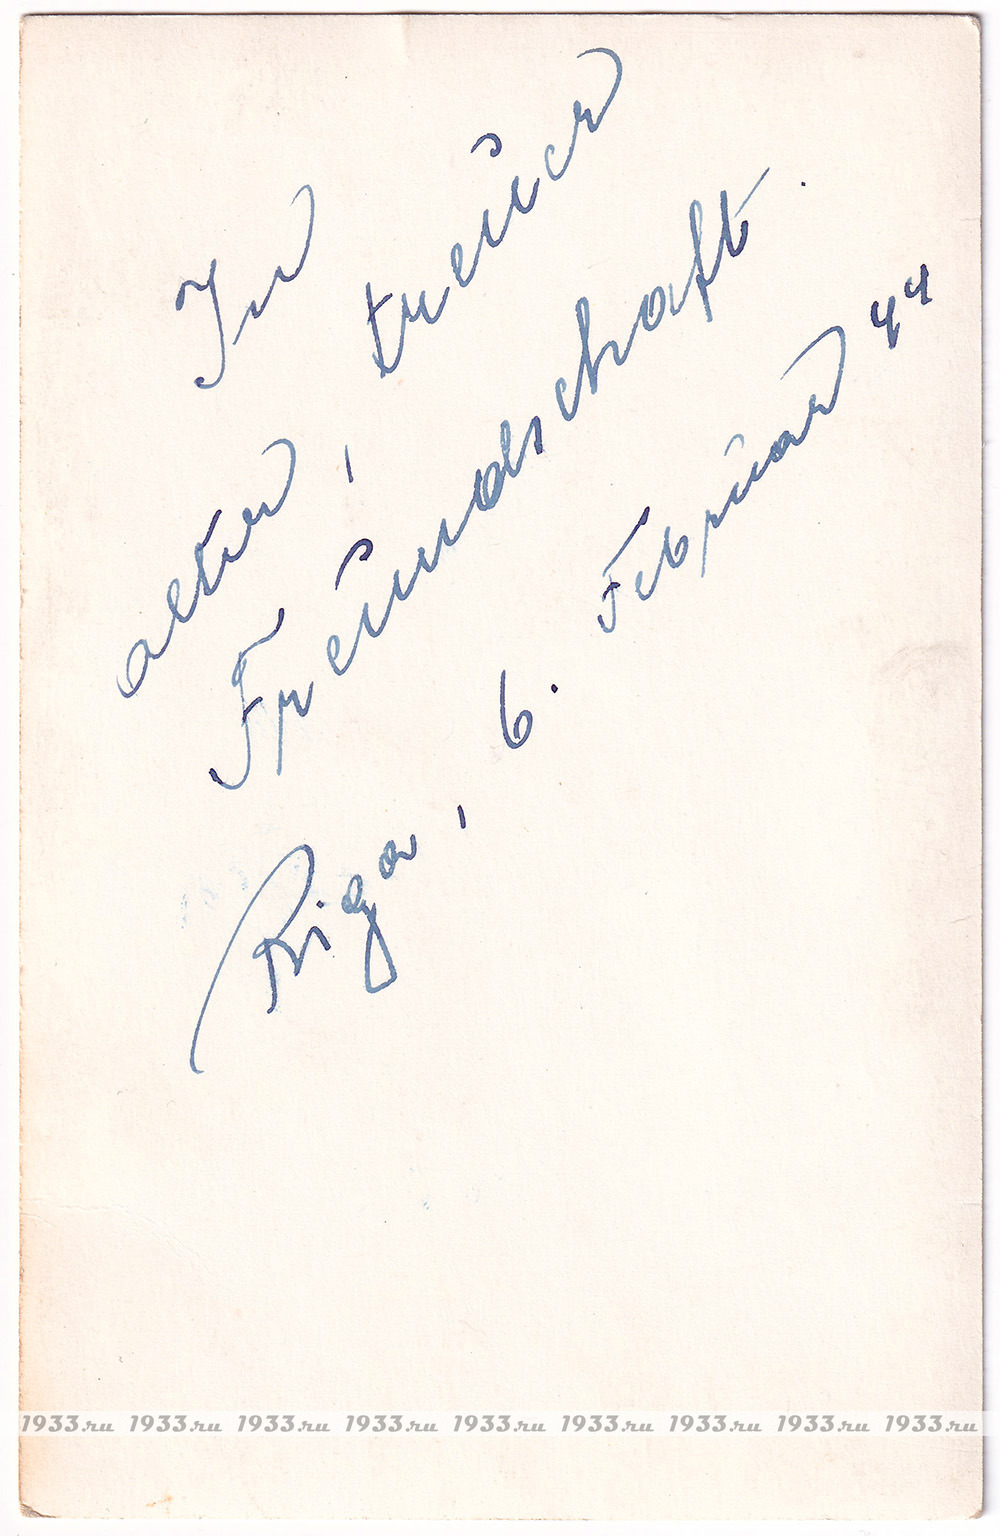 In
alter, treuer
Freundschaft.
Riga, 6. Februar 44
1933.ru 1933.ru 1933.ru 1933.ru 1933.ru 1933.ru 1933.ru 1933.ru 1933.ru